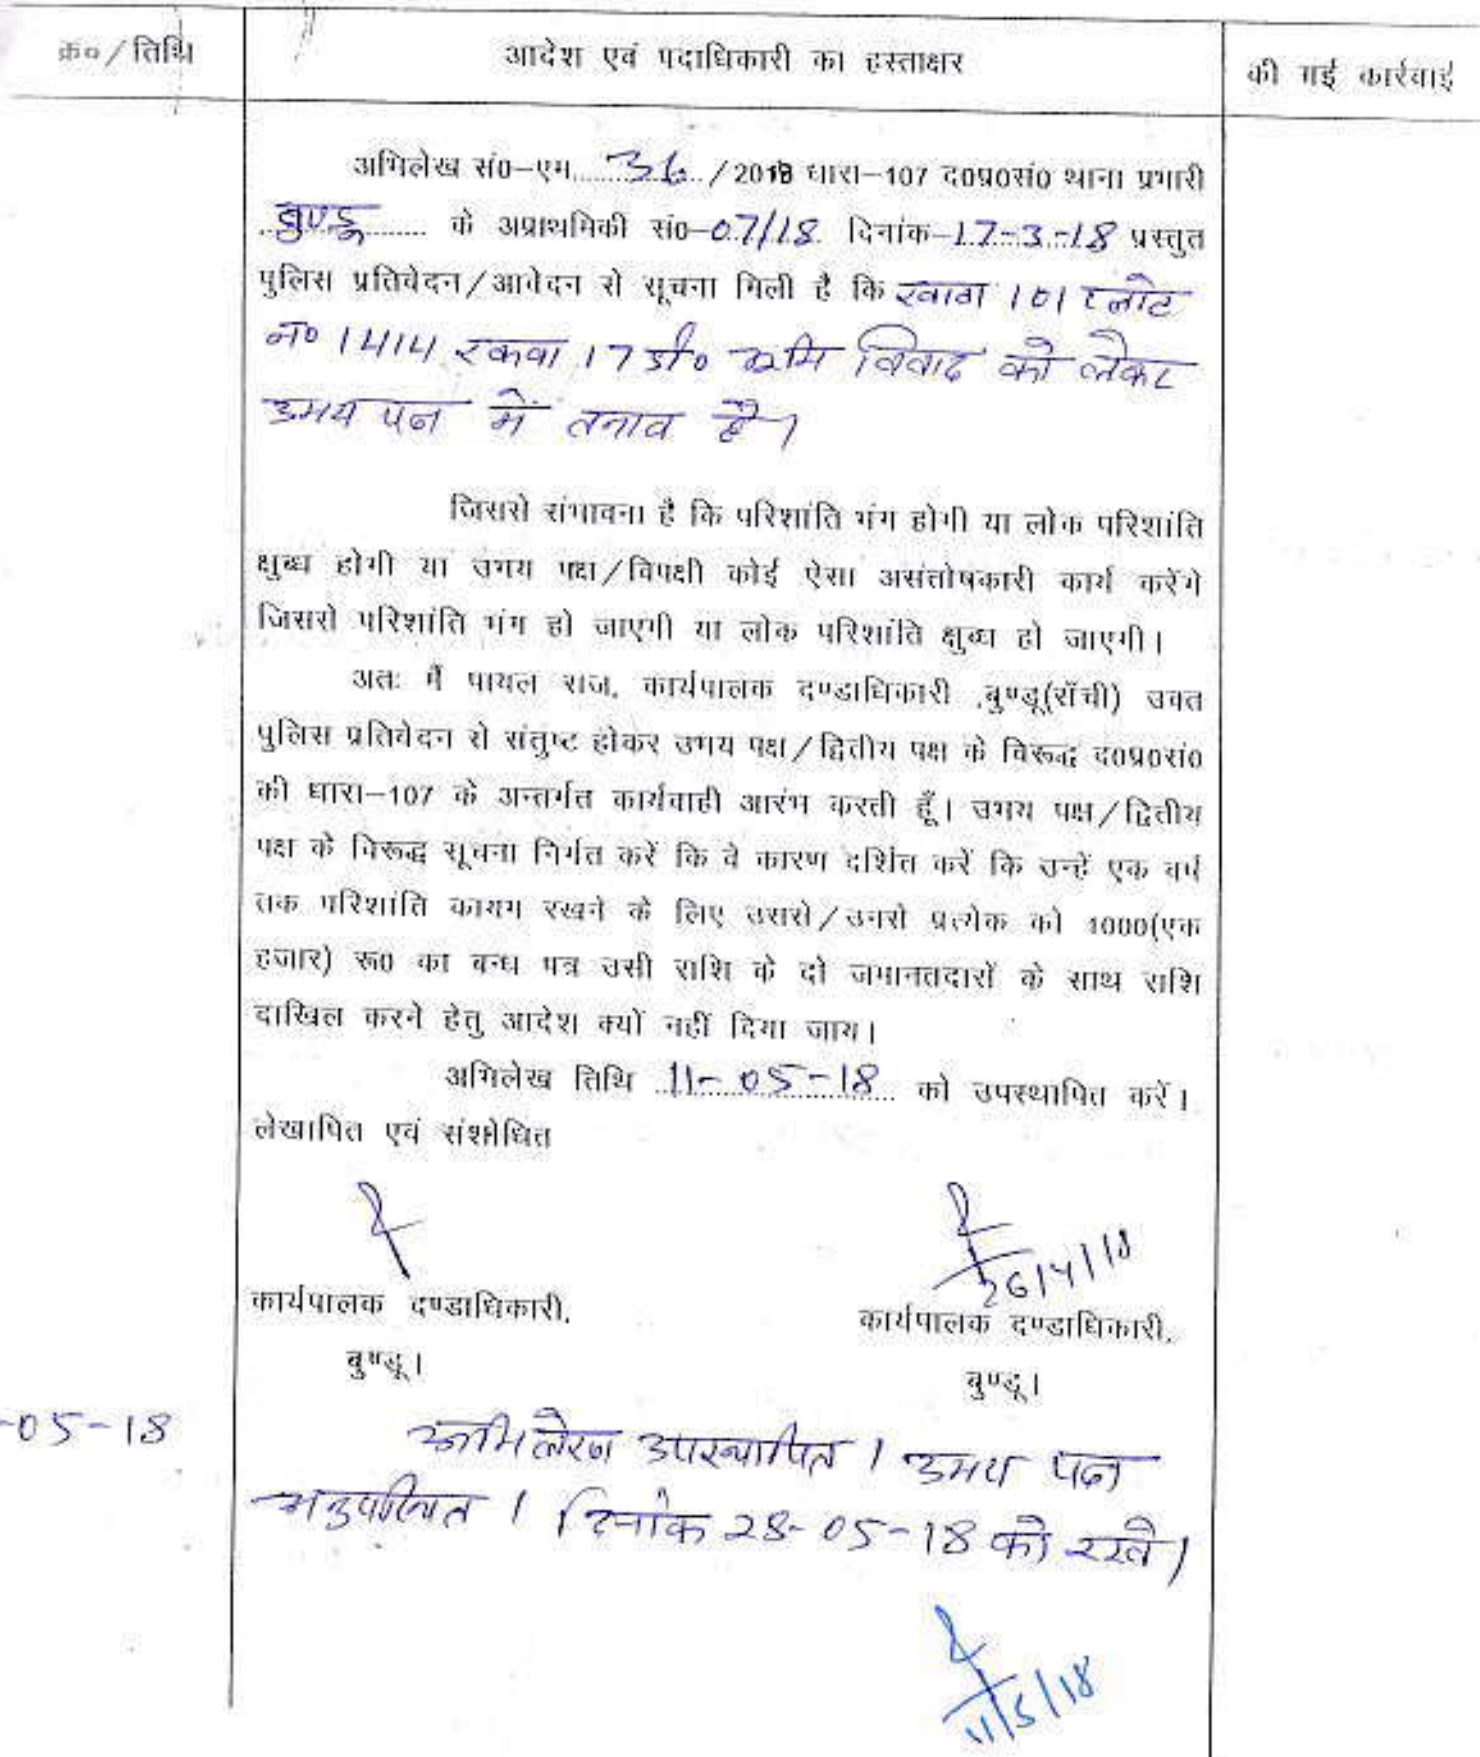 क्र० / तिथि
आदेश एवं पदाधिकारी का हस्ताक्षर
की गई कार्रवाई
अभिलेख सं0-एम 36 /2018 धारा-107 द0प्र0सं0 थाना प्रभारी
बुण्डू के अप्राथमिकी सं0-07/18 दिनांक-17-3-18 प्रस्तुत
पुलिस प्रतिवेदन/आवेदन से सूचना मिली है कि खाता 101 प्लोट
नं० 1414 रकवा 17 डी० भूमि विवाद को लेकर
उभय पक्ष में तनाव है।
जिससे संभावना है कि परिशांति भंग होगी या लोक परिशांति
क्षुब्ध होगी या उभय पक्ष/विपक्षी कोई ऐसा असंतोषकारी कार्य करेंगे
जिससे परिशांति भंग हो जाएगी या लोक परिशांति क्षुब्ध हो जाएगी।
अतः मैं पायल राज, कार्यपालक दण्डाधिकारी ,बुण्डू(राँची) उक्त
पुलिस प्रतिवेदन से संतुष्ट होकर उभय पक्ष/द्वितीय पक्ष के विरूद्ध द0प्र0सं0
की धारा-107 के अन्तर्गत कार्यवाही आरंभ करती हूँ। उभय पक्ष/द्वितीय
पक्ष के विरूद्ध सूचना निर्गत करें कि वे कारण दर्शित करें कि उन्हें एक वर्ष
तक परिशांति कायम रखने के लिए उससे/उनसे प्रत्येक को 1000(एक
हजार) रू0 का बन्ध पत्र उसी राशि के दो जमानतदारों के साथ राशि
दाखिल करने हेतु आदेश क्यों नहीं दिया जाय।
अभिलेख तिथि 11-05-18 को उपस्थापित करें।
लेखापित एवं संशोधित
26/4/18
कार्यपालक दण्डाधिकारी,
कार्यपालक दण्डाधिकारी,
बुण्डू।
बुण्डू।
-05-18
अभिलेख उपस्थापित। उभय पक्ष
अनुपस्थित। दिनांक 28-05-18 को रखें।
11/5/18